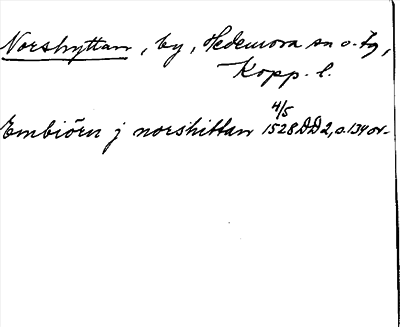 Norshyttan, by, Hedemora sn o. tg,
Kopp. l.
Embiörn j norshittan 4/5 1528 DD2, o. 134 or.